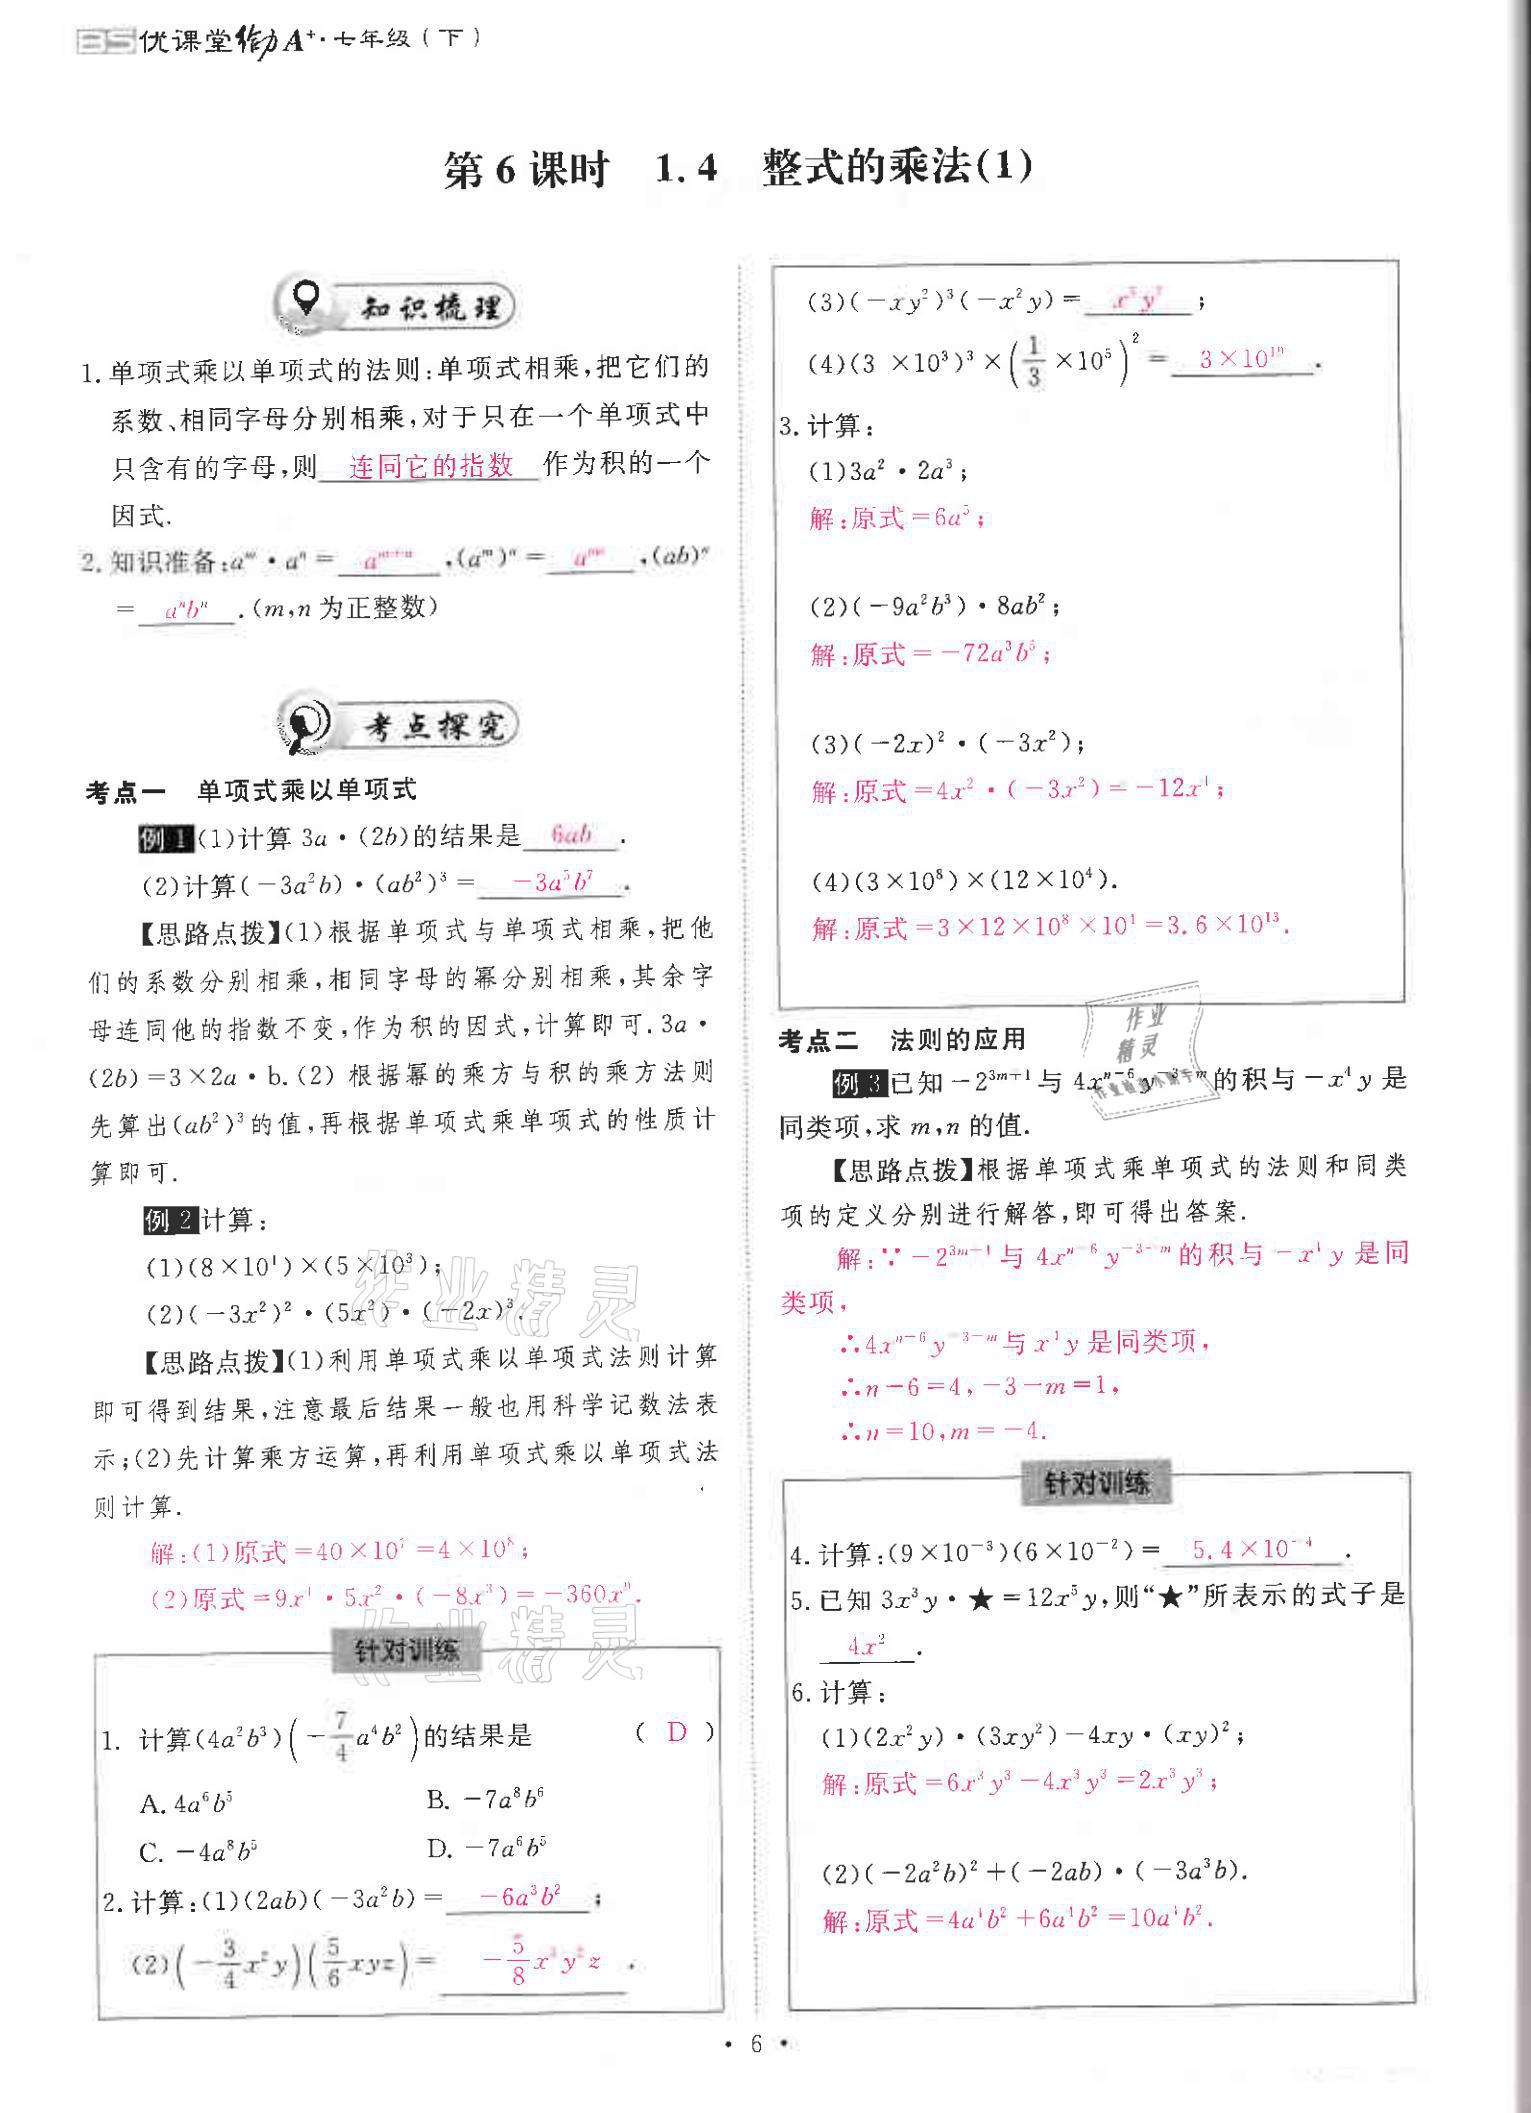 BS优课堂给力A⁺·七年级(下)
第6课时 1.4 整式的乘法(1)
知识梳理
1.单项式乘以单项式的法则:单项式相乘,把它们的
系数、相同字母分别相乘,对于只在一个单项式中
只含有的字母,则 连同它的指数 作为积的一个
因式.
2.知识准备:aᵐ·aⁿ= aᵐ⁺ⁿ ,(aᵐ)ⁿ= aᵐⁿ ,(ab)ⁿ
= aⁿbⁿ .(m,n为正整数)
考点探究
考点一 单项式乘以单项式
例1(1)计算3a·(2b)的结果是 6ab .
(2)计算(-3a²b)·(ab²)³= -3a⁵b⁷ .
【思路点拨】(1)根据单项式与单项式相乘,把他
们的系数分别相乘,相同字母的幂分别相乘,其余字
母连同他的指数不变,作为积的因式,计算即可.3a·
(2b)=3×2a·b.(2)根据幂的乘方与积的乘方法则
先算出(ab²)³的值,再根据单项式乘单项式的性质计
算即可.
例2计算:
(1)(8×10⁴)×(5×10³);
(2)(-3x²)²·(5x²)·(-2x)³.
【思路点拨】(1)利用单项式乘以单项式法则计算
即可得到结果,注意最后结果一般也用科学记数法表
示;(2)先计算乘方运算,再利用单项式乘以单项式法
则计算.
解:(1)原式=40×10⁷=4×10⁸;
(2)原式=9x⁴·5x²·(-8x³)=-360x⁹.
针对训练
1. 计算(4a²b³)(-7/4a⁴b²)的结果是 ( D )
A. 4a⁶b⁵ B. -7a⁸b⁶
C. -4a⁸b⁵ D. -7a⁶b⁵
2.计算:(1)(2ab)(-3a²b)= -6a³b² ;
(2)(-3/4x²y)(5/6xyz)= -5/8x³y²z .
(3)(-xy²)³(-x²y)= x⁵y⁷ ;
(4)(3×10³)³×(1/3×10⁵)²= 3×10¹⁹ .
3.计算:
(1)3a²·2a³;
解:原式=6a⁵;
(2)(-9a²b³)·8ab²;
解:原式=-72a³b⁵;
(3)(-2x)²·(-3x²);
解:原式=4x²·(-3x²)=-12x⁴;
(4)(3×10⁸)×(12×10⁴).
解:原式=3×12×10⁸×10⁴=3.6×10¹³.
考点二 法则的应用
例3已知-2³ᵐ⁺¹与4xⁿ⁻⁶y⁻³⁻ᵐ的积与-x⁴y是
同类项,求m,n的值.
【思路点拨】根据单项式乘单项式的法则和同类
项的定义分别进行解答,即可得出答案.
解:∵-2³ᵐ⁺¹与4xⁿ⁻⁶y⁻³⁻ᵐ的积与-x⁴y是同
类项,
∴4xⁿ⁻⁶y⁻³⁻ᵐ与x⁴y是同类项,
∴n-6=4,-3-m=1,
∴n=10,m=-4.
针对训练
4.计算:(9×10⁻³)(6×10⁻²)= 5.4×10⁻⁴ .
5.已知3x³y·★=12x⁵y,则“★”所表示的式子是
4x² .
6.计算:
(1)(2x²y)·(3xy²)-4xy·(xy)²;
解:原式=6x³y³-4x³y³=2x³y³;
(2)(-2a²b)²+(-2ab)·(-3a³b).
解:原式=4a⁴b²+6a⁴b²=10a⁴b².
· 6 ·
作业精灵
作业精灵
作业
精灵